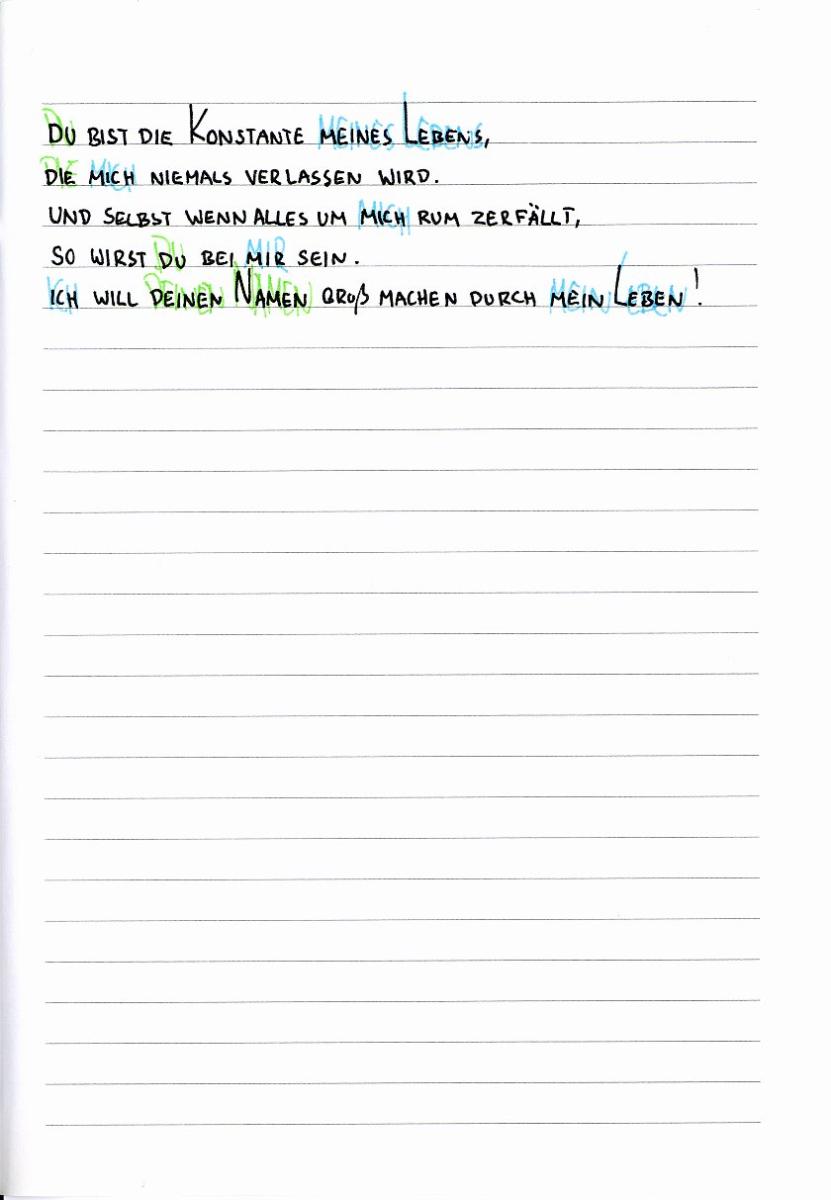 DU BIST DIE KONSTANTE MEINES LEBENS,
DIE MICH NIEMALS VERLASSEN WIRD.
UND SELBST WENN ALLES UM MICH RUM ZERFÄLLT,
SO WIRST DU BEI MIR SEIN.
ICH WILL DEINEN NAMEN GROß MACHEN DURCH MEIN LEBEN!